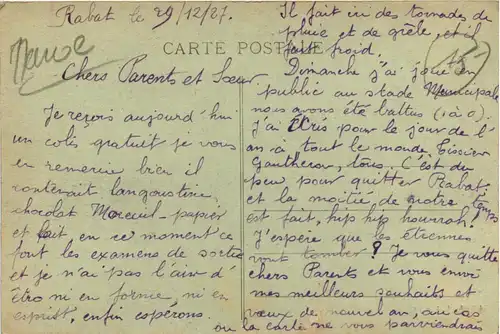 Rabat le 29/12/27.
Maroc
CARTE POSTALE
Chers Parents et Sœur
Je reçois aujourd'hui
un colis gratuit je vous
en remercie bien il
contenait langoustine,
chocolat papier
et en ce moment ce
font les examens de sortie
et je n'ai pas l'air d'
être ni en forme, ni en
esprit, enfin espérons.
Il fait ici des tornades de
pluie et de grêle, et il
fait froid.
Dimanche j'ai joué en
public au stade Municipale
nous avons été battus (1 à 0)
j'ai écris pour le jour de l'
an à tout le monde
Gautheron, tous. C'est du
peu pour quitter Rabat
et la moitié de notre temps
est fait, hip hip hourrah!
J'espère que les étrennes
vont tomber? Je vous quitte
chers Parents et vous envoi
mes meilleurs souhaits et
vœux de nouvel an, au cas
ou la carte ne vous parviendrai